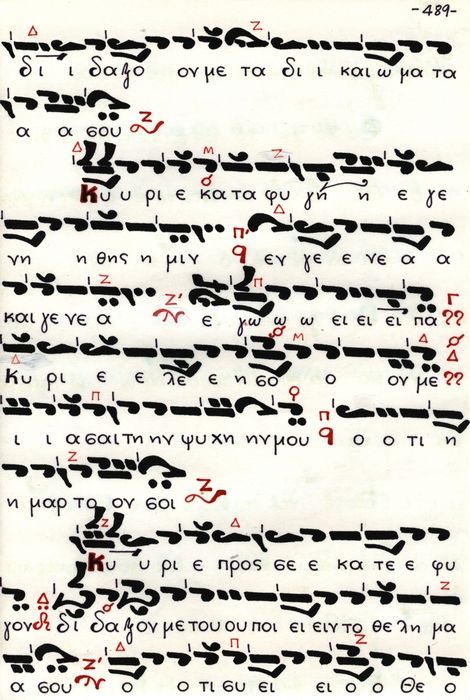 -489-
δι ι δαξο ον με τα δι και ω μα τα
α α σου
Κυ υ ρι ε κα τα φυ γη η ε γε
νη η θης η μιν εν γε ε νε α α
και γε νε α ε γω ω ω ει ει ει πα
Κυ ρι ε ε λε ε η σο ο ον με
ι ι α σαι τη ην ψυ χη ην μου ο ο τι η
η μαρ το ον σοι
Κυ υ ρι ε προς σε ε κα τε ε φυ
γον δι δα ξον με του ου ποι ει ειν το θε λη μα
α σου ο ο τι συ ει ει ο θε ο